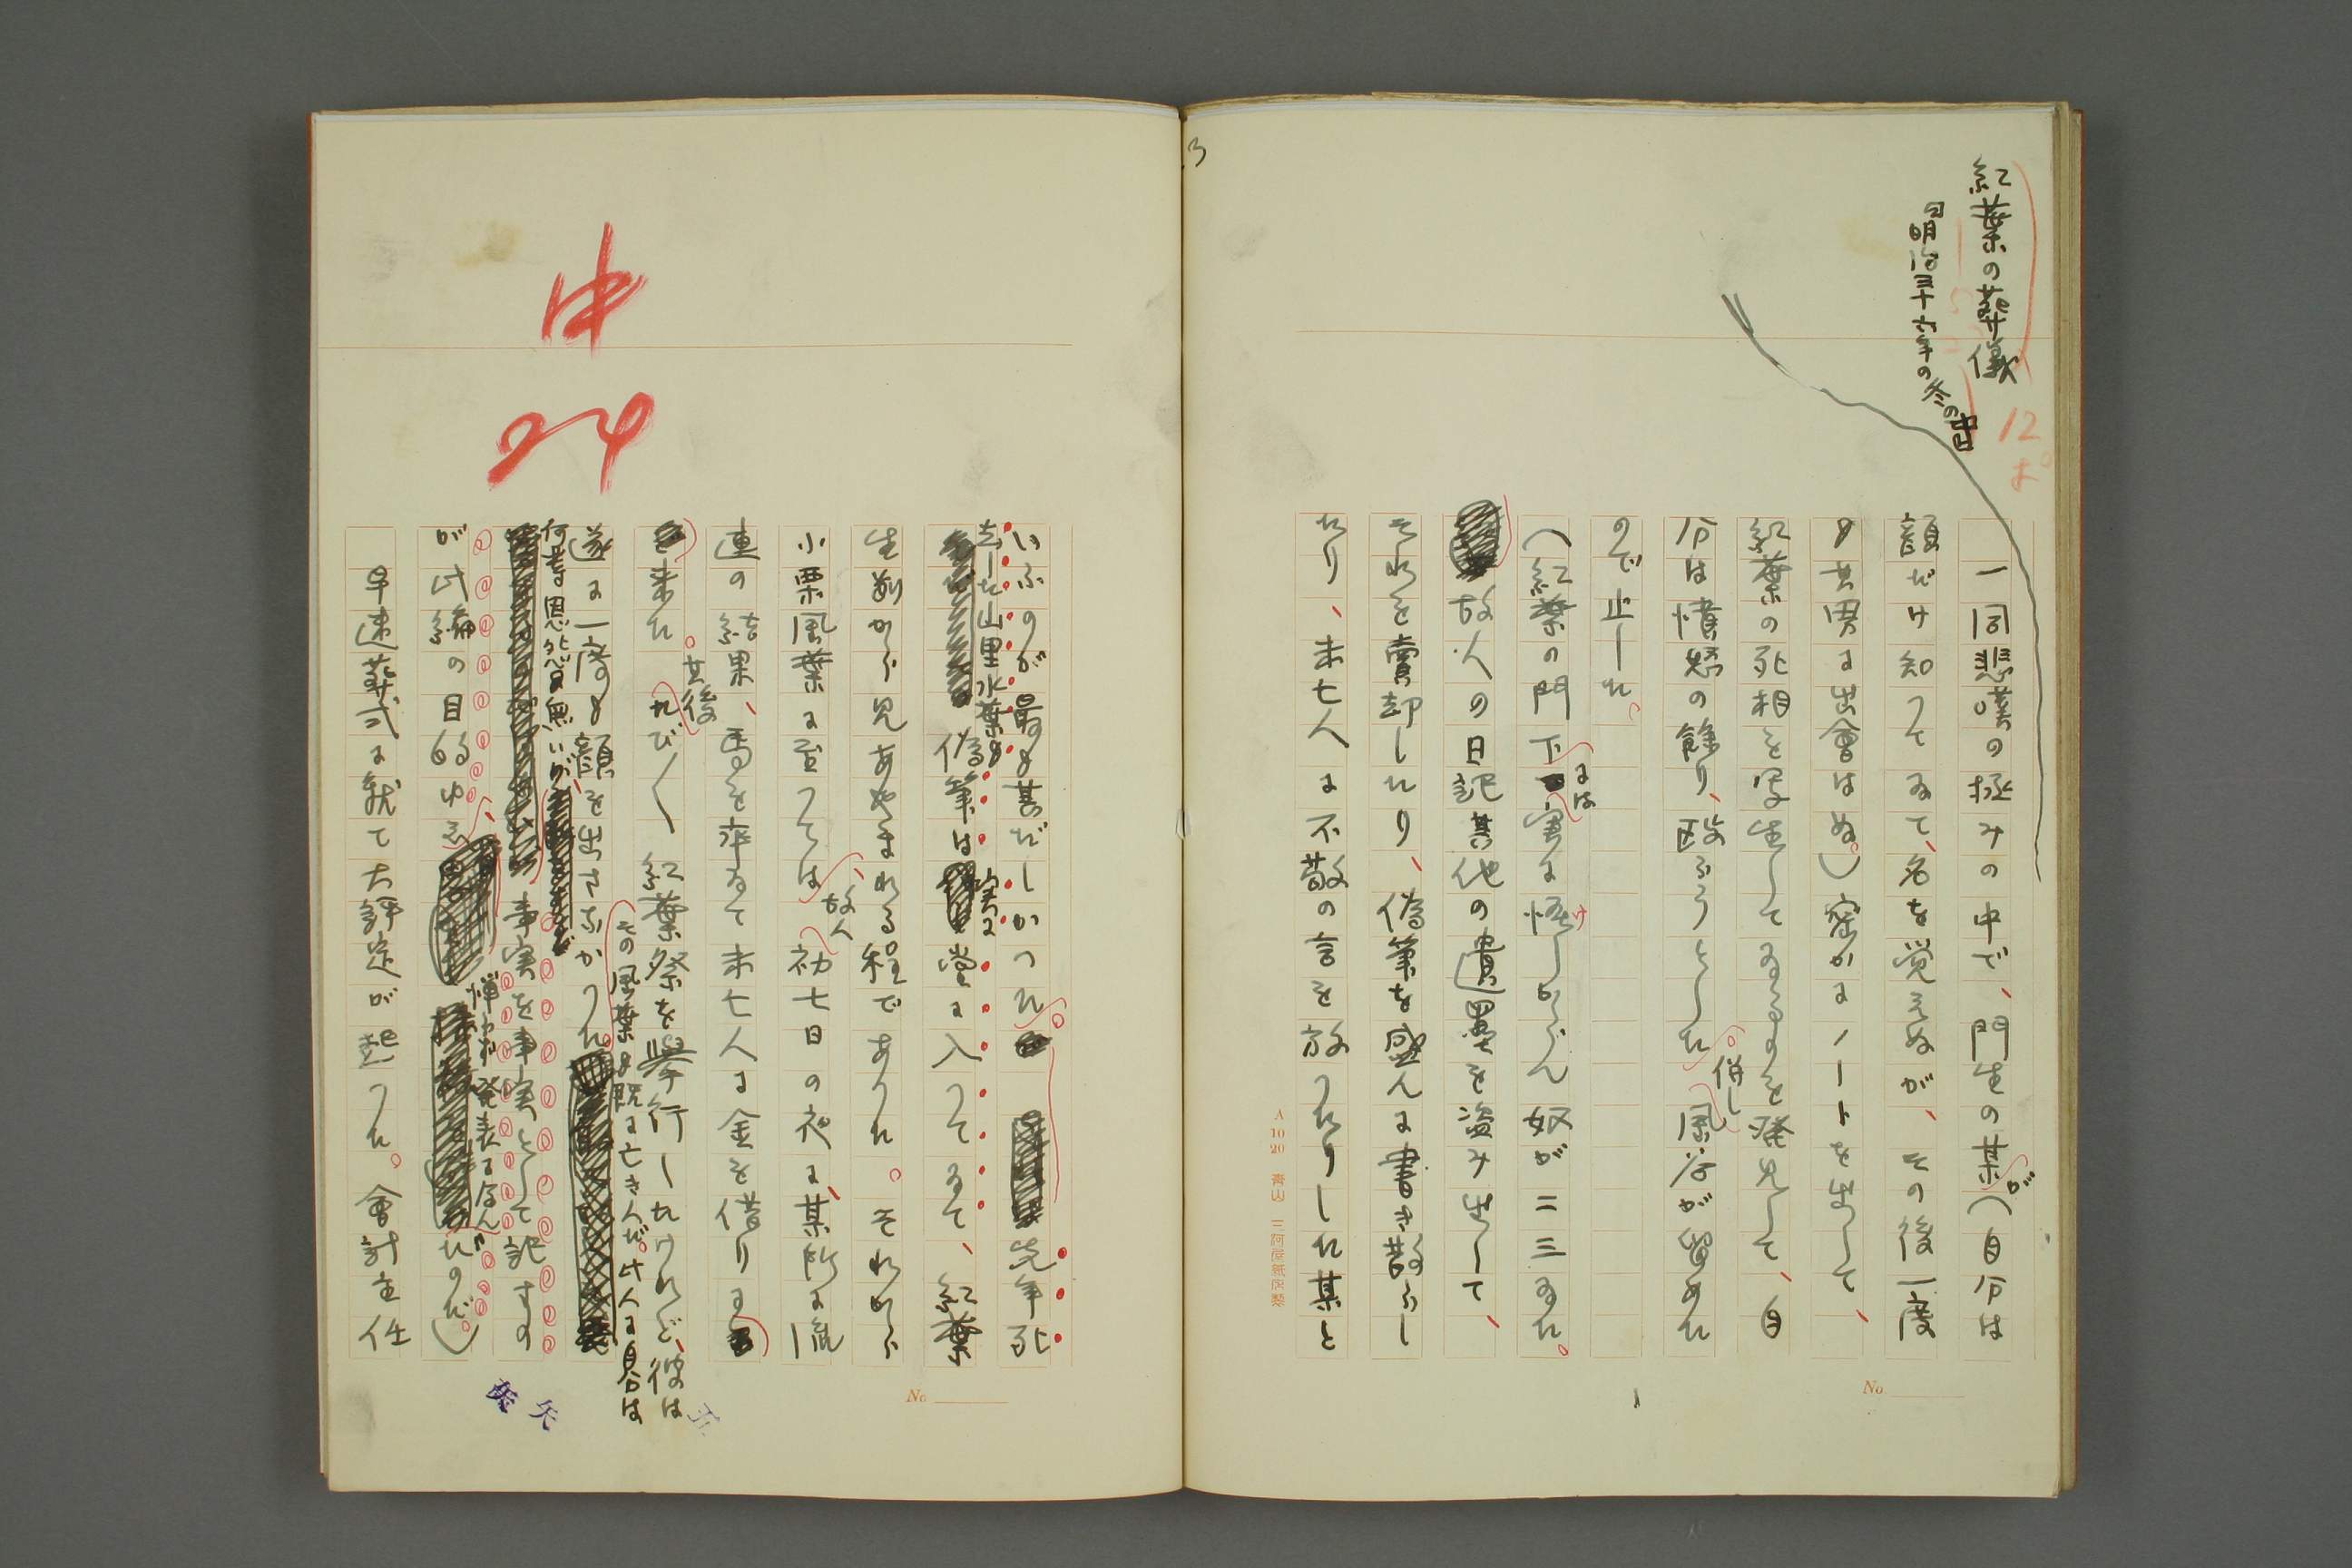 紅葉の葬儀
明治三十六年の冬の中
12
一同悲嘆の極みの中で、門生の某が(自分は
顔だけ知つてゐて、名を覚えぬが、その後一度
も其男に出會はぬ。)密かにノートを出して、
紅葉の死相を写生してゐるのを発見して、自
分は憤怒の餘り、殴らうとした。併し風谷が留めた
ので止した。
(紅葉の門下には実に怪しからん奴が二三ゐた。
故人の日記其他の遺墨を盗み出して、
それを賣却したり、偽筆を盛んに書き散らし
たり、未亡人に不敬の言を放つたりした某と
A 10 20
No
3
いふのが最も甚だしかつた。先年死
去した山里水葉も
偽筆は実に堂に入つてゐて、紅葉
生前から見あやまれる程であつた。それから
小栗風葉に至つては、故人初七日の夜に、某所に流
連の結果、馬を率ゐて未亡人に金を借りに
来た。其後たび〱紅葉祭を挙行したけれど、彼は
遂に一度も顔を出さなかつた
その風葉も既に亡き人だ。此人に自分は
何等恩怨は無いが
事実を事実として記すの
が此編の目的ゆゑ、憚らず発表するんだのだ。)
早速葬式に就て大評定が起つた。會計主任
中
24
No